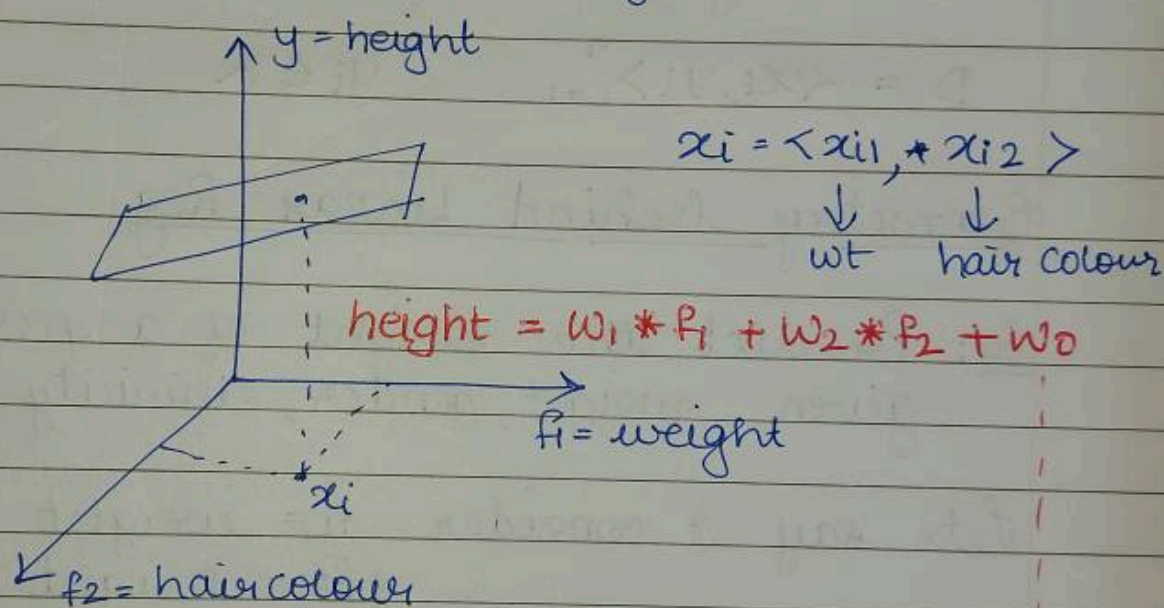 y = height
xi = <xi1, * xi2 >
↓ ↓
wt hair colour
height = w1 * f1 + w2 * f2 + w0
f1 = weight
xi
f2 = hair colour